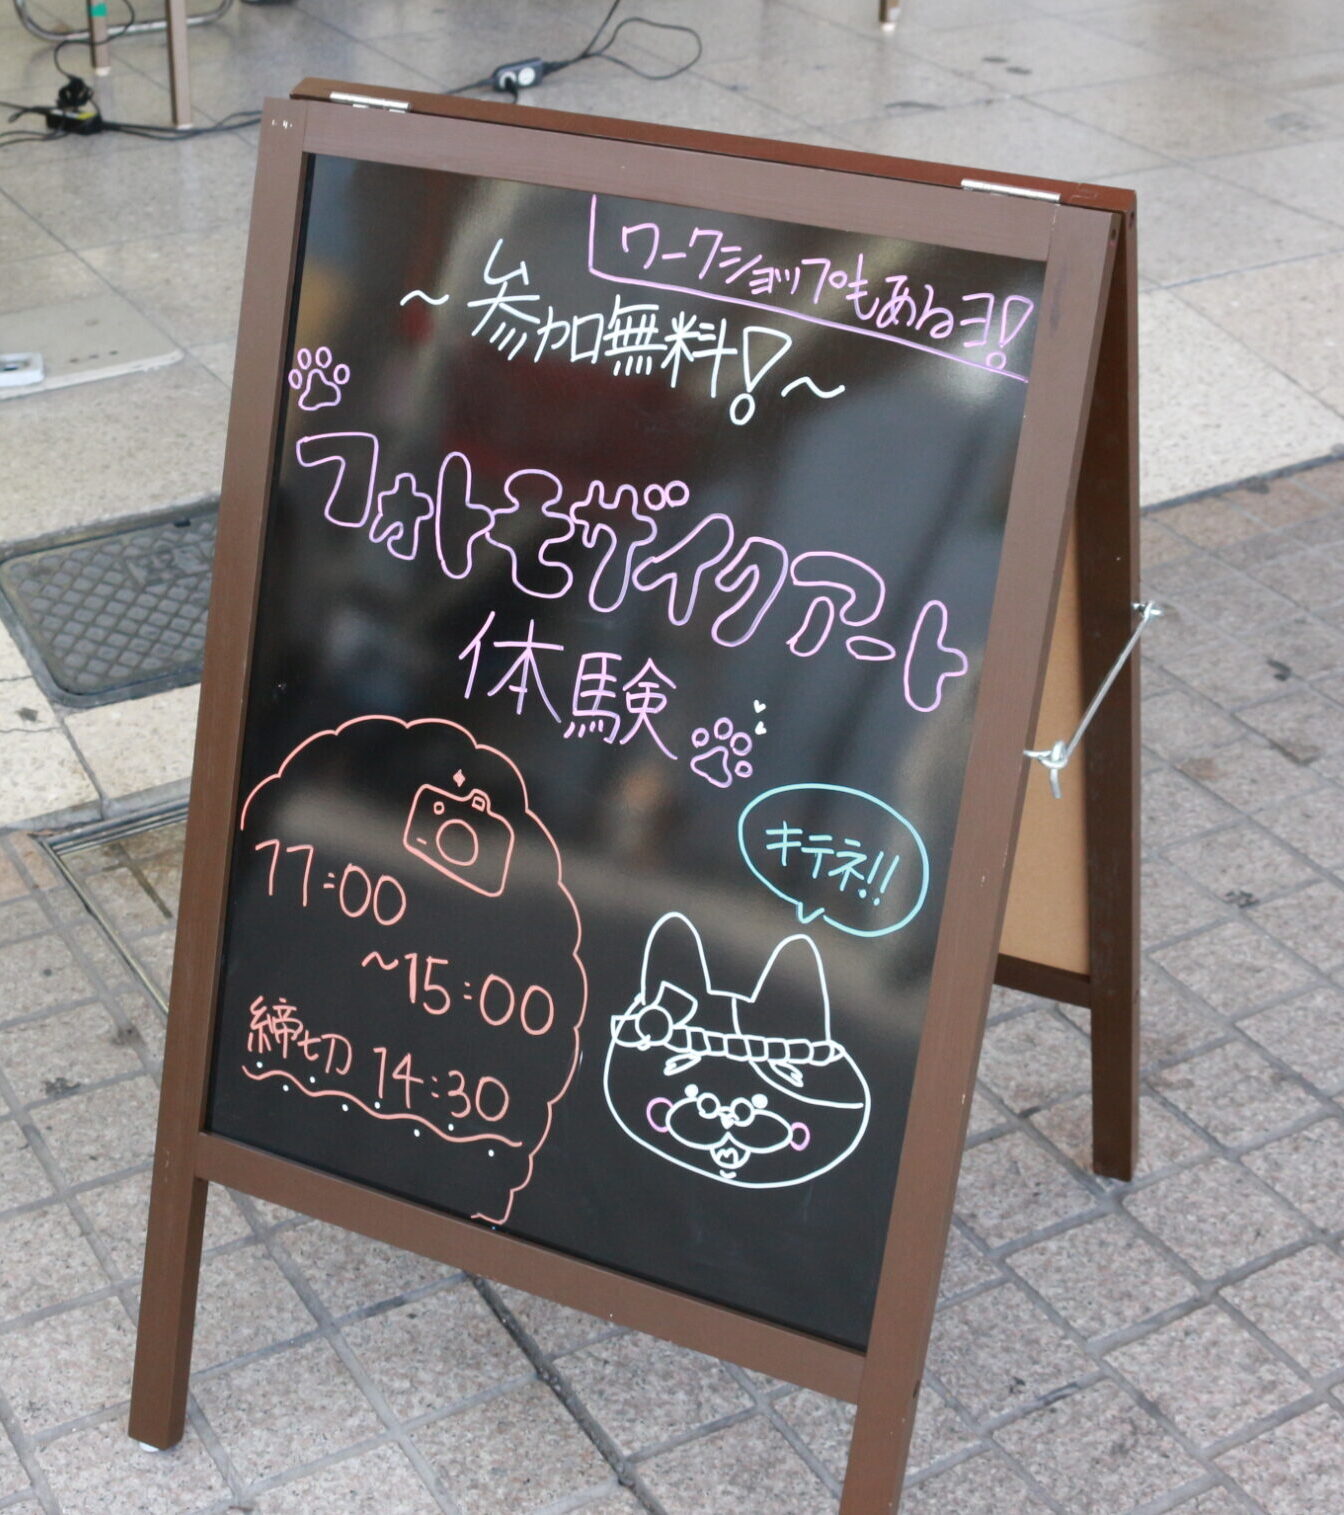 ワークショップもあるヨ!
～参加無料!～
フォトモザイクアート
体験
キテネ!!
11:00
～15:00
締切 14:30